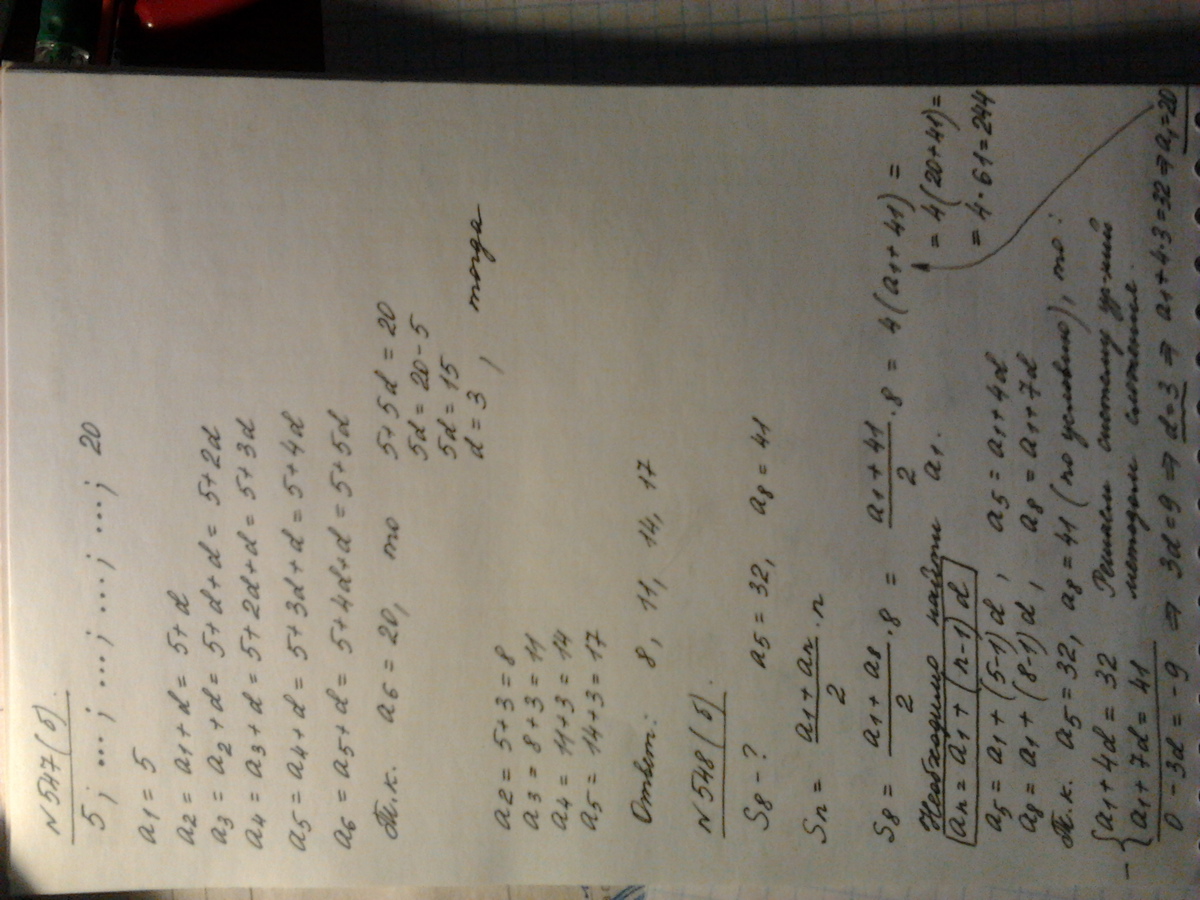 N547(б).
5; ...; ...; ...; ...; 20
a1 = 5
a2 = a1+d = 5+d
a3 = a2+d = 5+d+d = 5+2d
a4 = a3+d = 5+2d+d = 5+3d
a5 = a4+d = 5+3d+d = 5+4d
a6 = a5+d = 5+4d+d = 5+5d
Т.к. a6 = 20, то 5+5d = 20
5d = 20-5
5d = 15
d = 3, тогда
a2 = 5+3 = 8
a3 = 8+3 = 11
a4 = 11+3 = 14
a5 = 14+3 = 17
Ответ: 8, 11, 14, 17
N548(б).
S8 - ? a5 = 32, a8 = 41
Sn = (a1+an)/2 · n
S8 = (a1+a8)/2 · 8 = (a1+41)/2 · 8 = 4(a1+41) =
= 4(20+41) =
= 4·61 = 244
Необходимо найти a1.
an = a1+(n-1)d
a5 = a1+(5-1)d, a5 = a1+4d
a8 = a1+(8-1)d, a8 = a1+7d
Т.к. a5 = 32, a8 = 41 (по условию), то:
- { a1+4d = 32 Решаем систему ур-ний
a1+7d = 41 методом сложения.
0 - 3d = -9 ⇒ 3d = 9 ⇒ d = 3 ⇒ a1+4·3 = 32 ⇒ a1 = 20